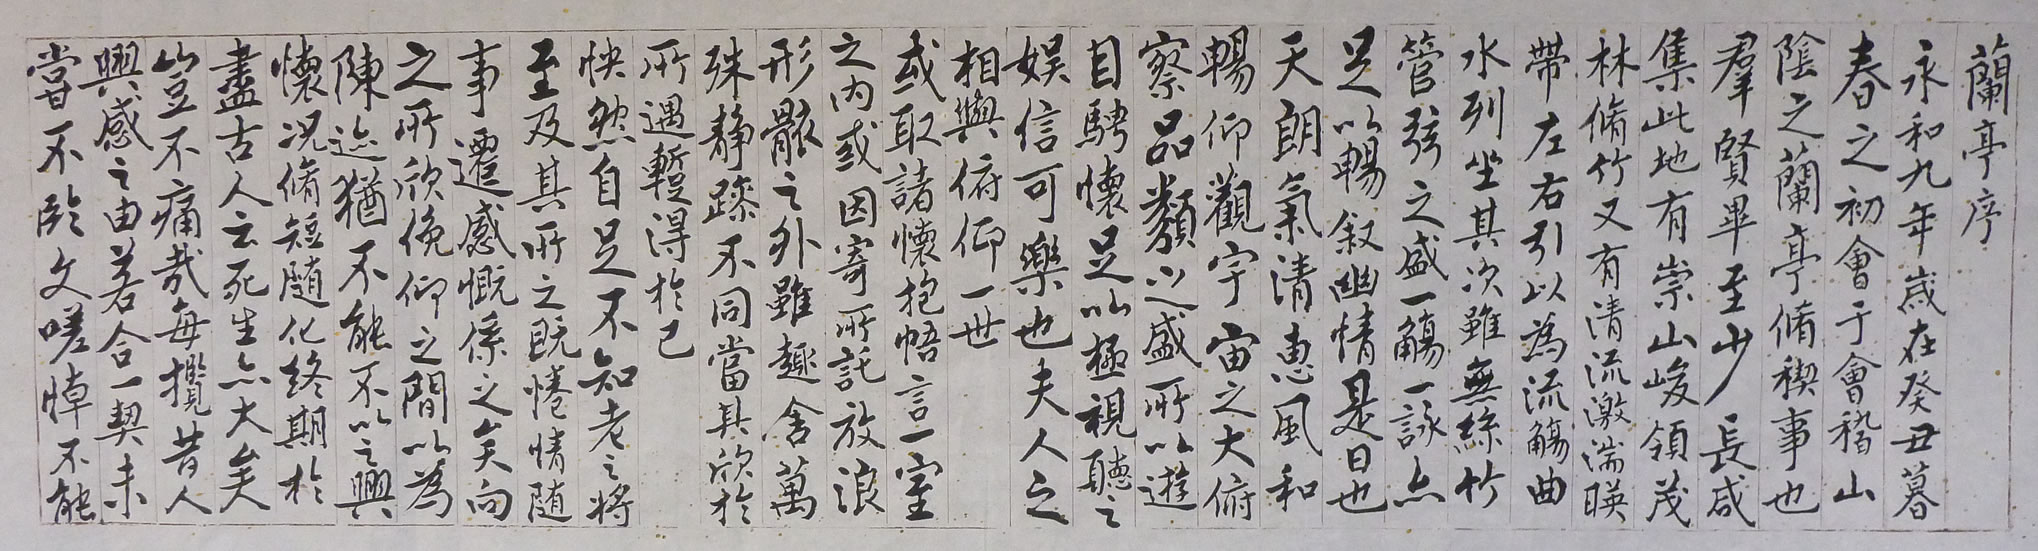 蘭亭序
永和九年歲在癸丑暮
春之初會于會稽山
陰之蘭亭脩稧事也
羣賢畢至少長咸
集此地有崇山峻領茂
林脩竹又有清流激湍暎
帶左右引以為流觴曲
水列坐其次雖無絲竹
管弦之盛一觴一詠亦
足以暢叙幽情是日也
天朗氣清惠風和
暢仰觀宇宙之大俯
察品類之盛所以遊
目騁懷足以極視聽之
娛信可樂也夫人之
相與俯仰一世
或取諸懷抱悟言一室
之内或因寄所託放浪
形骸之外雖趣舍萬
殊静躁不同當其欣於
所遇暫得於己
怏然自足不知老之將
至及其所之既惓情随
事遷感慨係之矣向
之所欣俛仰之間以為
陳迹猶不能不以之興
懷况脩短随化終期於
盡古人云死生亦大矣
豈不痛哉每攬昔人
興感之由若合一契未
嘗不臨文嗟悼不能